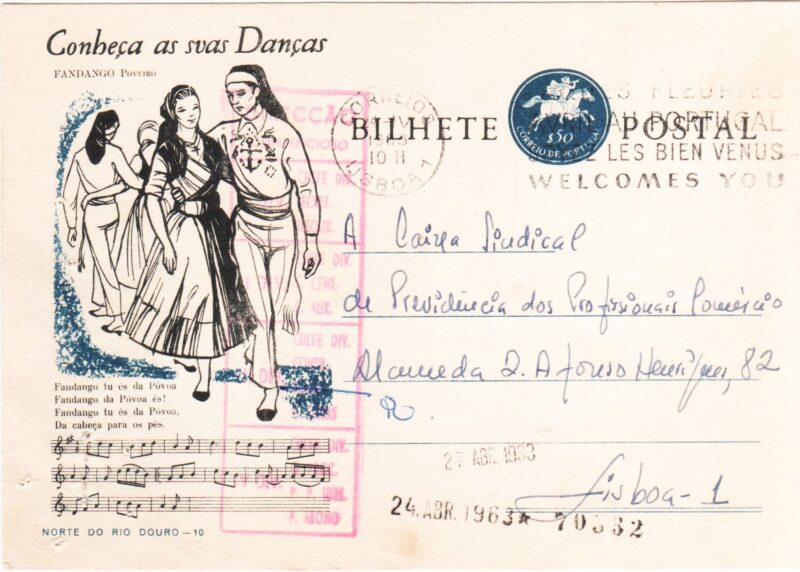 Conheça as svas Danças
FANDANGO POVEIRO
CORREIOS
10 11
LISBOA 1
BILHETE POSTAL
$50
CORREIO DE PORTUGAL
FLEURIES
AU PORTUGAL
LES BIEN VENUS
WELCOMES YOU
A Caixa Sindical
de Previdência dos Profissionais Comércio
Alameda D. Afonso Henriques, 82
Lisboa-1
27 ABR. 1963
24. ABR. 1963★ 70332
CHEFE DIV.
DIV.
CENT.
AUX.
CHEFE DIV.
CONTR.
DIV.
P. ABONO
Fandango tu és da Póvoa
Fandango da Póvoa és!
Fandango tu és da Póvoa,
Da cabeça para os pés.
NORTE DO RIO DOURO – 10